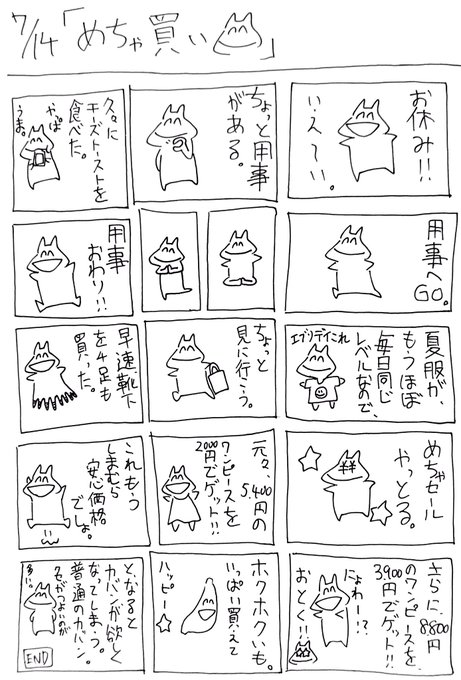 7/14「めちゃ買い」
お休み!!
いえ〜い。
ちょっと用事
がある。
久々に
チーズトーストを
食べた。
やっぱ
うま。
用事へ
GO。
用事
おわり!!
夏服が、
もうほぼ
毎日同じ
レベルなので、
エブリデイこれ
ちょっと
見に行こう。
早速靴下
を4足も
買った。
めちゃセール
やっとる。
元々、
5,400円の
ワンピースを
2000円でゲット!!
これもう
しまむら
安心価格
でしょ。
さらに、8,800円
のワンピースを、
3,900円でゲット!!
にょわー!?
おとく!!
ホクホクいも。
いっぱい買えて
ハッピー☆
となると
カバンが欲しく
なってしまう。
普通のカバン。
END